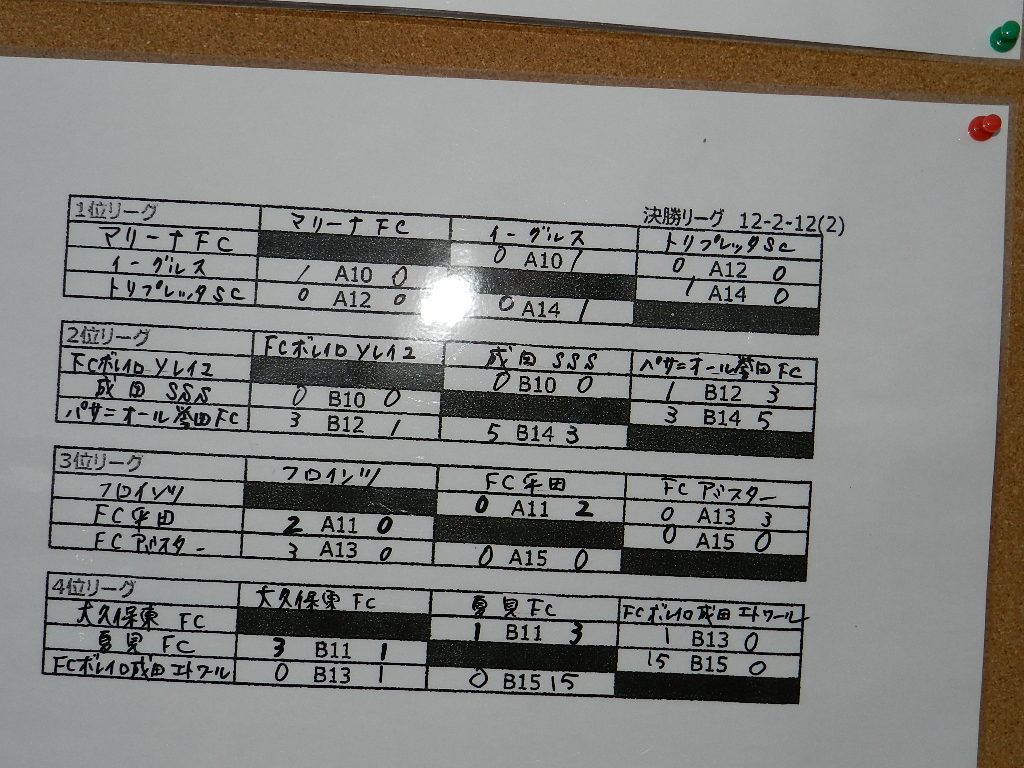 決勝リーグ 12-2-12(2)
1位リーグ マリーナFC イーグルス トリプレッタSC
マリーナFC 0 A10 1 0 A12 0
イーグルス 1 A10 0 1 A14 0
トリプレッタSC 0 A12 0 0 A14 1
2位リーグ FCボレイロVレイ2 成田SSS パサニオール誉田FC
FCボレイロVレイ2 0 B10 0 1 B12 3
成田SSS 0 B10 0 3 B14 5
パサニオール誉田FC 3 B12 1 5 B14 3
3位リーグ フロインツ FC平田 FCアバスター
フロインツ 0 A11 2 0 A13 3
FC平田 2 A11 0 0 A15 0
FCアバスター 3 A13 0 0 A15 0
4位リーグ 大久保東FC 夏見FC FCボレイロ成田エトワール
大久保東FC 1 B11 3 1 B13 0
夏見FC 3 B11 1 15 B15 0
FCボレイロ成田エトワール 0 B13 1 0 B15 15